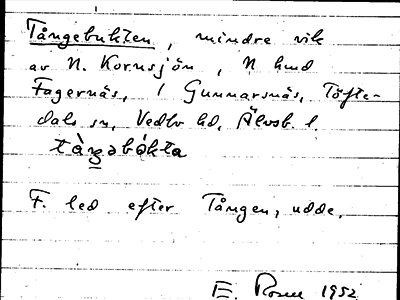 Tångebukten, mindre vik
av N. Kornsjön, N hmd
Fagernäs, i Gunnarsnäs, Töfte-
dals sn, Vedbo hd, Älvsb. l.
tån̲gəbókta
F. led efter Tången, udde.
E. Rosm 1952